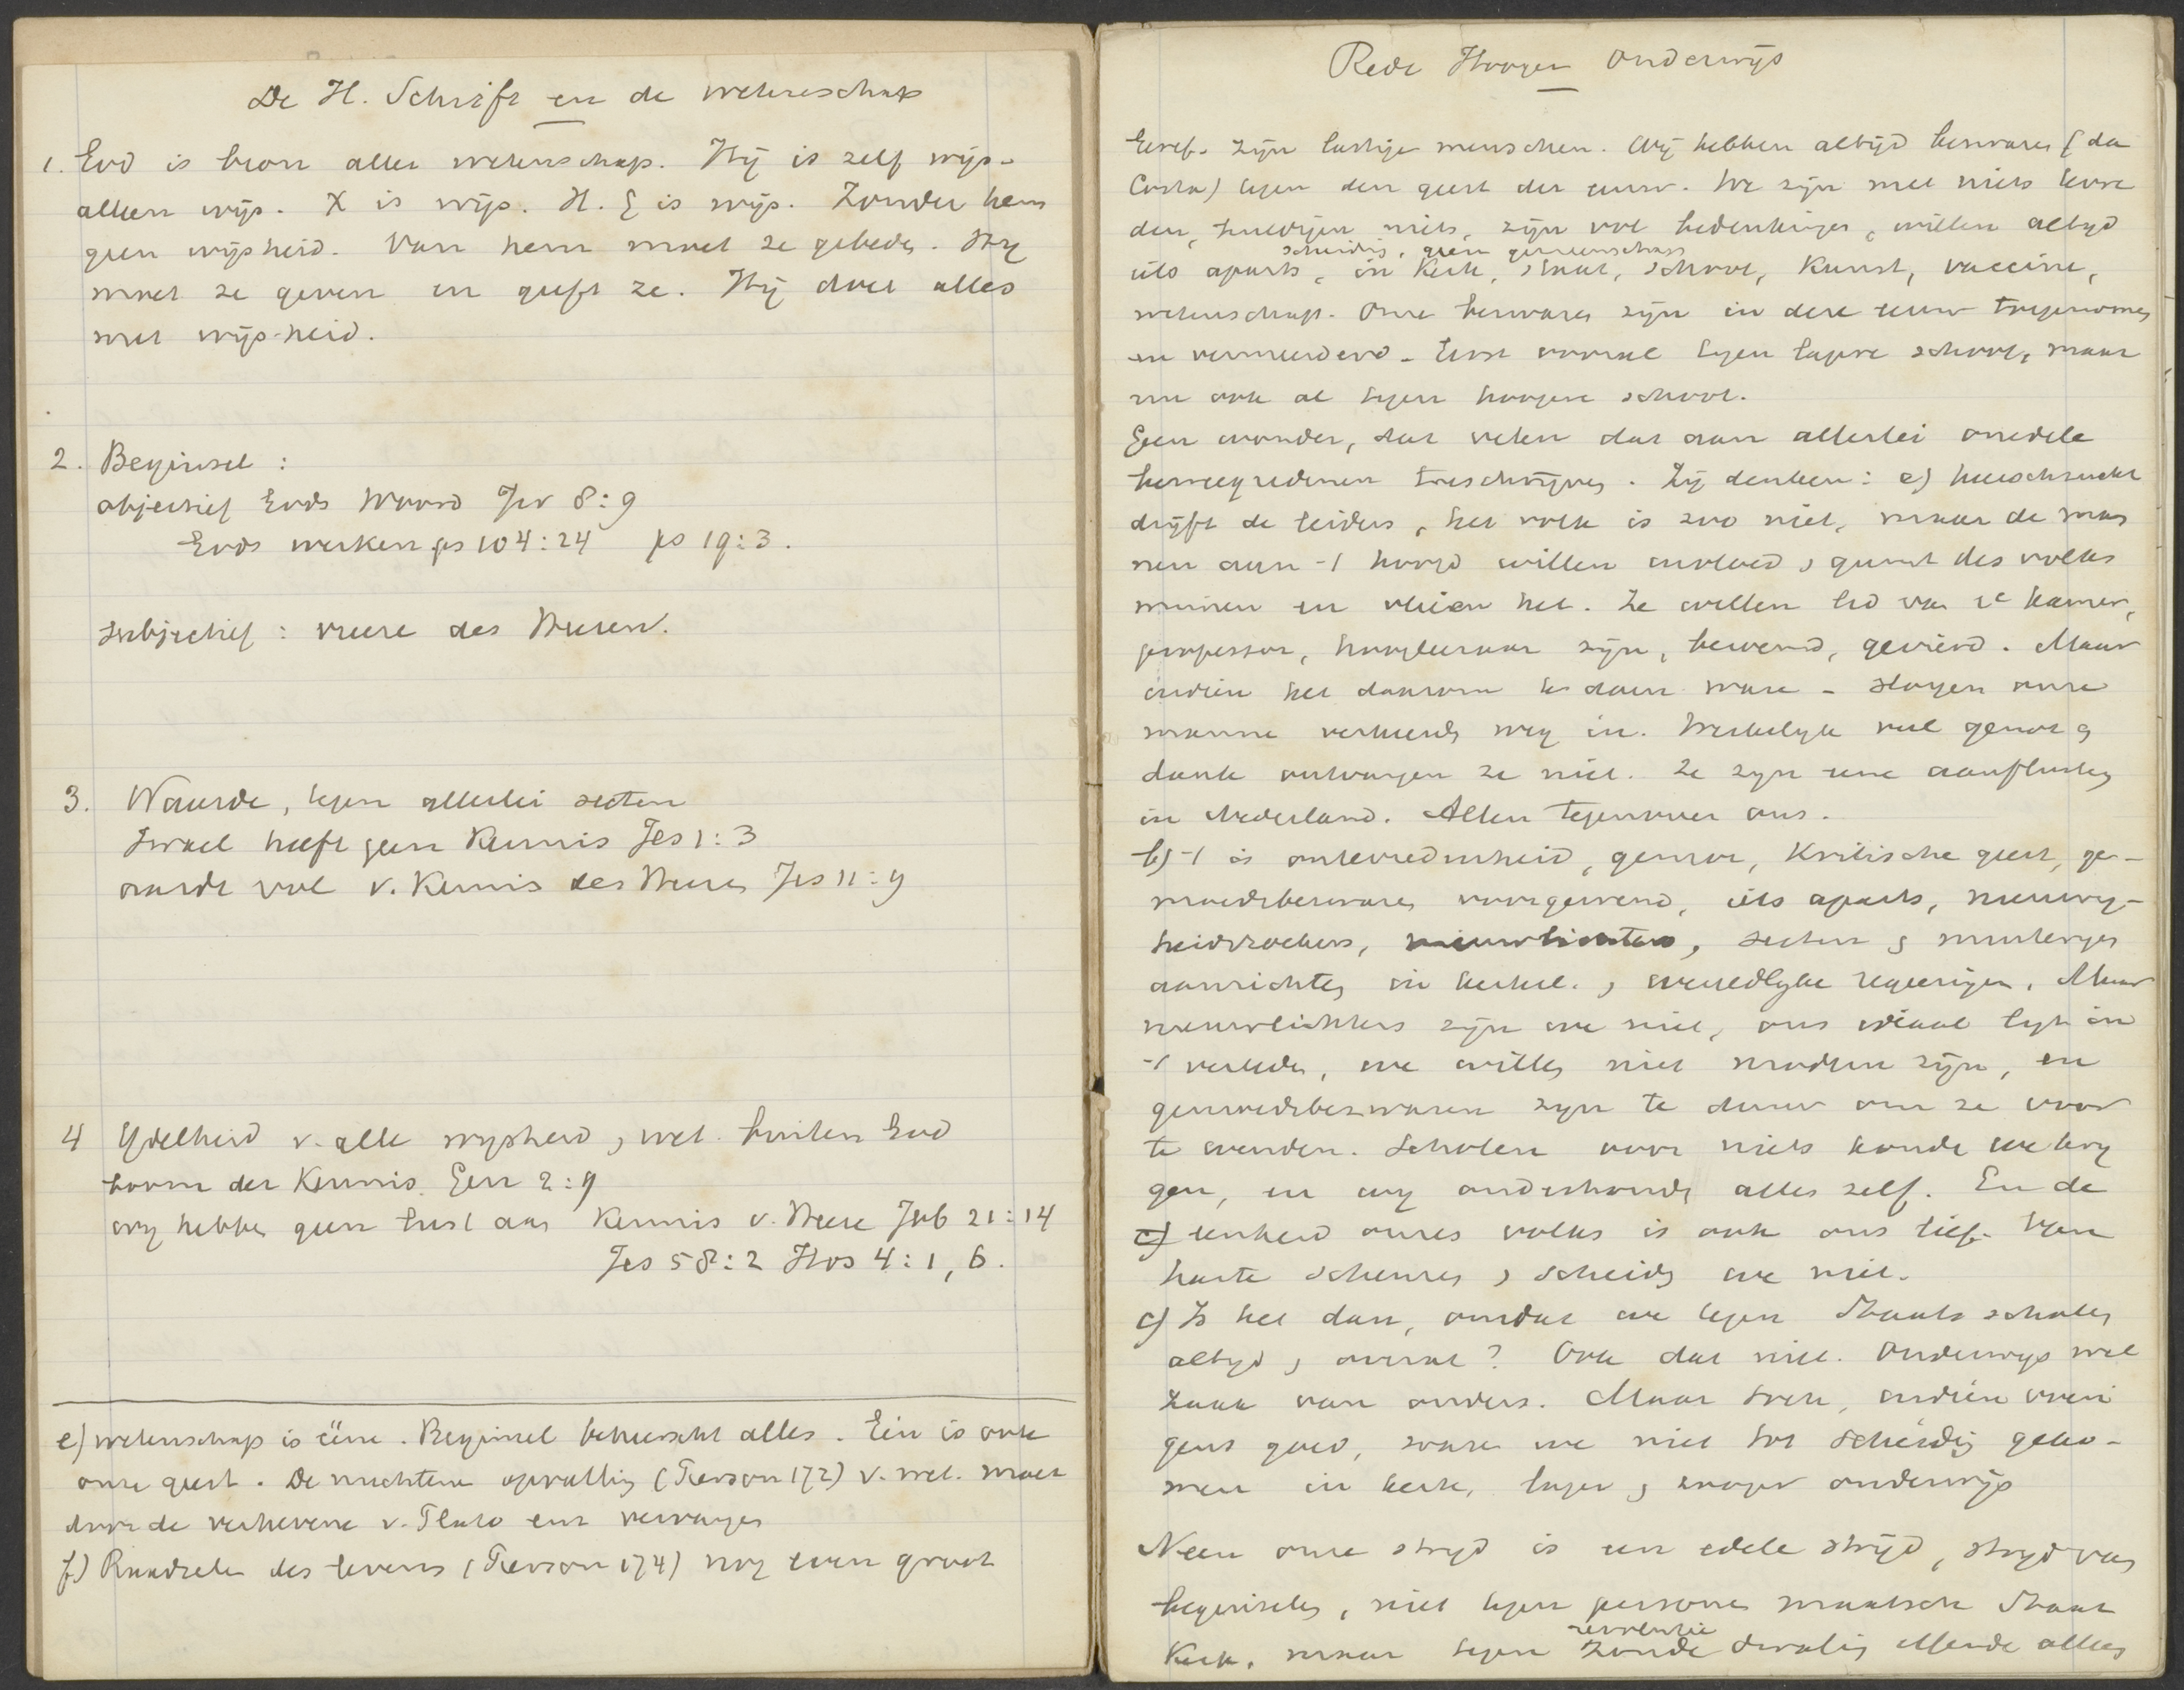 De H. Schrift en de wetenschap
1. God is bron aller wetenschap. Hij is zelf wijs -
alleen wijs. X is wijs. H. G is wijs. Zonder hem
geen wijsheid. Van hem moet ze gebeden. Hij
moet ze geven en geeft ze. Hij doet alles
met wijsheid.
2. Beginsel :
objectief Gods Woord Jer 8:9
Gods werken ps 104:24 ps 19:3.
subjectief : vreeze des Heeren.
3. Waarde, tegen allerlei secten
Israel heeft geen kennis Jes 1:3
aarde vol v. kennis des Heeren Jes 11:9
4 IJdelheid v. alle wijsheid, wet. buiten God
boom der Kennis. Gen 2:9
wij hebben geen lust aan kennis v. Heere Job 21:14
Jes 58:2 Hos 4:1, 6.
e) wetenschap is ééne. Beginsel beheerscht alles. Één is ook
onze geest. De nuchtere opvatting (Pierson 172) v. wet. moet
door de verhevene v. Plato enz vervangen
f) Raadselen des levens (Pierson 174) nog even groot
Rede Hooger onderwijs
Geref. zijn lastige menschen. Wij hebben altijd bezwaren (da
Costa) tegen den geest der eeuw. We zijn met niets tevre
den, huldigen niets, zijn vol bedenkingen, willen altijd
scheiding, geen gemeenschap
iets aparts, in Kerk, staat, school, kunst, vaccine,
wetenschap. Onze bezwaren zijn in deze eeuw toegenomen
en vermeerderd. Eerst vooral tegen lagere school, maar
nu ook al tegen hoogere school.
Geen wonder, dat velen dat aan allerlei onedele
beweegredenen toeschrijven. Zij denken: a) heerschzucht
drijft de leiders, het volk is zoo niet, maar de man
nen aan 't hoofd willen invloed, gunst des volks
winnen en vleien het. Ze willen lid van 2e kamer,
professor, hoogleeraar zijn, beroemd, gevierd. Maar
indien het daarom te doen ware - slogen onze
mannen verkeerde weg in. Werkelijk veel genot en
dank ontvangen ze niet. Ze zijn eene aanfluiting
in Nederland. Allen tegenover ons.
b) 't is ontevredenheid, gemor, kritische geest, ge-
moedsbezwaren voorgevend, iets aparts, nieuwig-
heidzoekers, nieuwlichters, secten en
aanrichten in kerkel. , wereldlijke regeeringen. Maar
nieuwlichters zijn we niet, ons ideaal ligt in
't verleden, we willen niet modern zijn, en
gemoedsbezwaren zijn te duur om ze voor
te wenden. Scholen voor niets konden we krij
gen, en wij onderhouden alles zelf. En de
c) eenheid onzes volks is ook ons lief. Van
harte scheuren, scheiden we niet.
c) Is het dan, omdat we tegen Staatsscholen
altijd, overal? Ook dat niet. Onderwijs wel
zaak van ouders. Maar toch, indien overi
gens goed, waren we niet tot scheiding geko-
men in kerk, lager, hooger onderwijs
Neen onze strijd is een edele strijd, strijd van
beginselen, niet tegen personen maatsch Staat
revolutie
Kerk, maar tegen zonde dwaling ellende alles